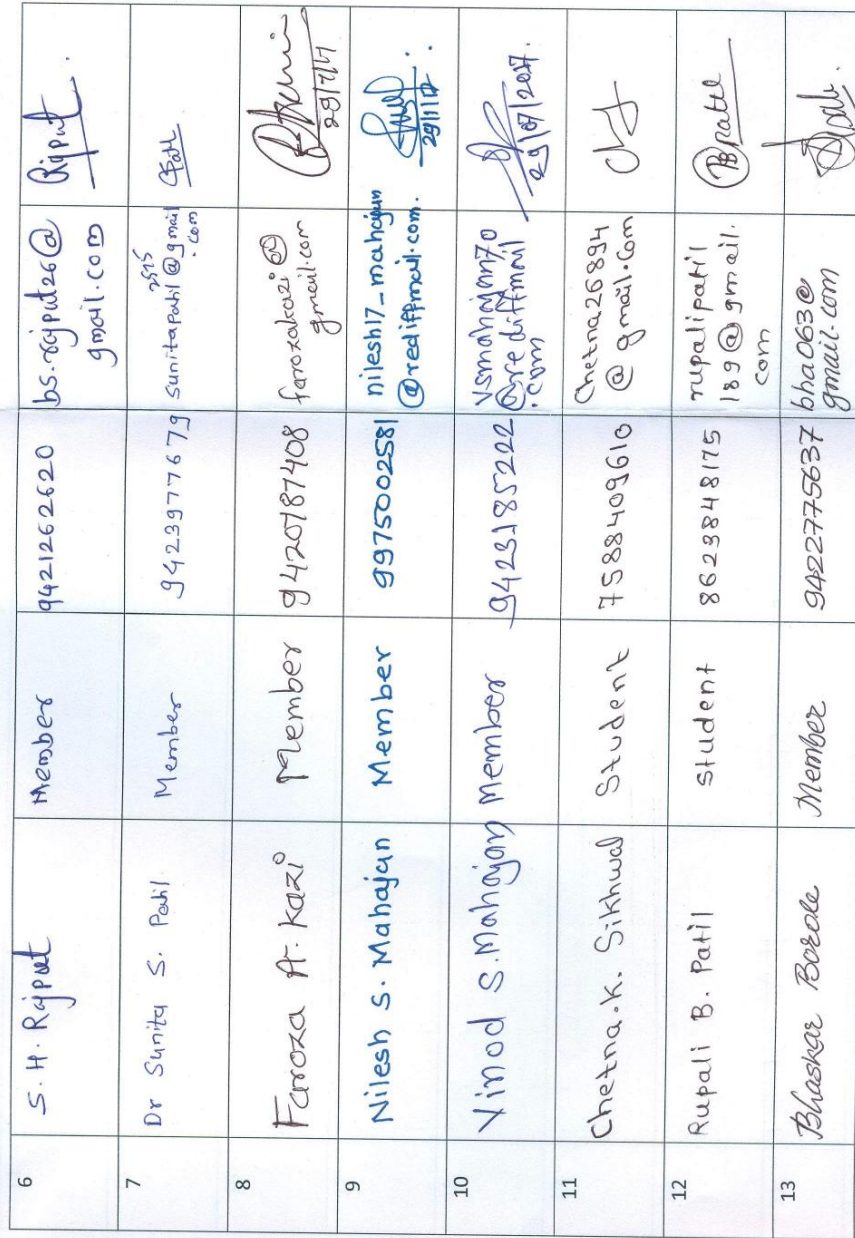 6 S. H. Rajput Member 9421262620 bs.rajput26@
gmail.com Rajput
7 Dr Sunita S. Patil Member 9423977679 sunitapatil2515@gmail
.com Patil
8 Faroza A. Kazi Member 9420187408 farozakazi@
gmail.com
29/7/17
9 Nilesh S. Mahajan Member 9975002581 nilesh17_mahajan
@rediffmail.com.
10 Vinod S. Mahajan Member 9423185222 vsmahajan70
@rediffmail
.com
29/07/2017.
11 Chetna.K. Sikhwal Student 7588409610 Chetna26894
@gmail.com
12 Rupali B. Patil student 8623848175 rupalipatil
189@gmail.
com RBPatil
13 Bhaskar Borole Member 9422775637 bha063@
gmail.com